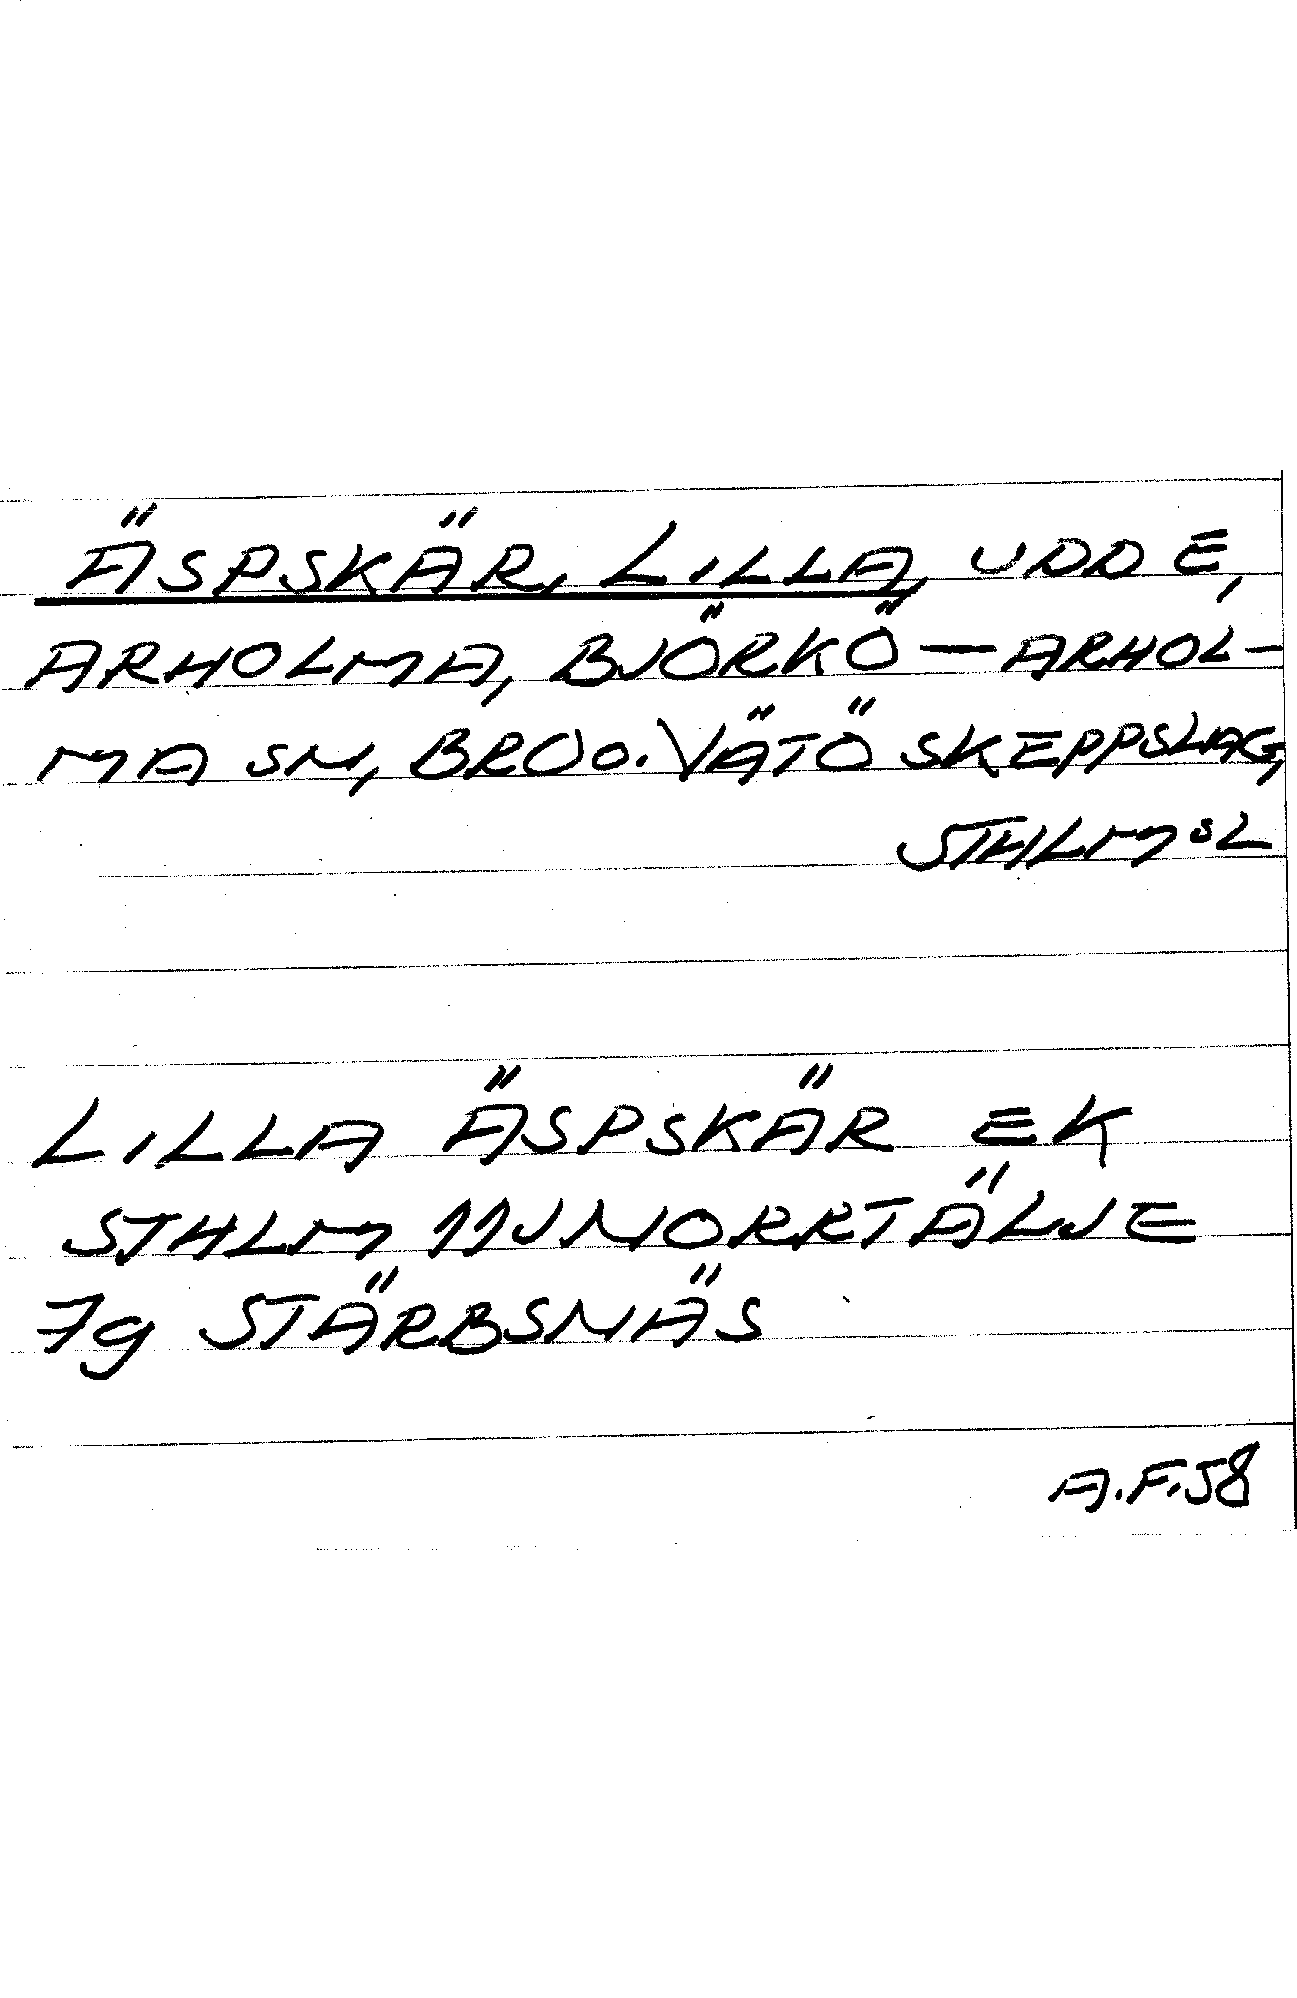 ÄSPSKÄR, LILLA, UDDE,
ARHOLMA, BJÖRKÖ—ARHOL-
MA SN, BRO O. VÄTÖ SKEPPSLAG,
STHLMSL
LILLA ÄSPSKÄR EK
STHLM 11J NORRTÄLJE
7g STÄRBSNÄS
A.F.58